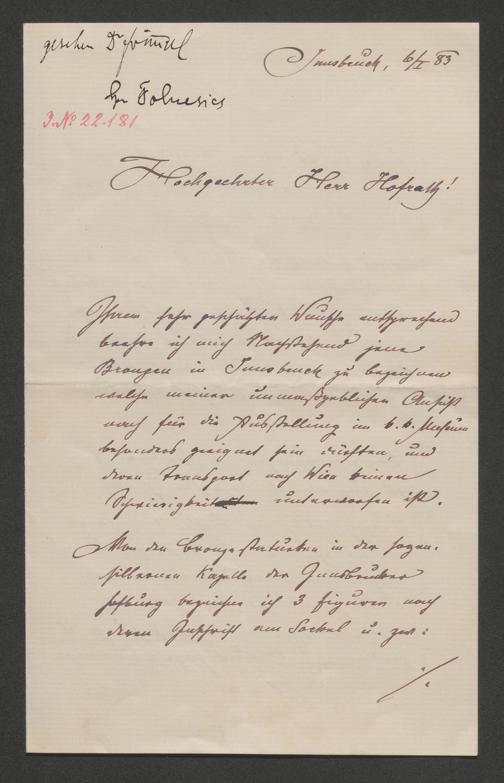 gesehen Dr
Hr Folnesics
J. No 22.181
Innsbruck, 6/I 83
Hochgeehrter Herr Hofrath!
Ihrem sehr geschätzten Wunsche entsprechend
beehre ich mich Nachstehend jene
Bronzen in Innsbruck zu bezeichnen
welche meiner unmaßgeblichen Ansicht
nach für die Ausstellung im k. k. Museum
besonders geeignet sein dürften, und
deren Transport nach Wien keinen
Schwierigkeiten unterworfen ist.
Von den Bronzestatuetten in der sogen.
silbernen Kapelle der Innsbrucker
Hofburg bezeichne ich 3 Figuren nach
deren Inschrift am Sockel u. zw:
./.